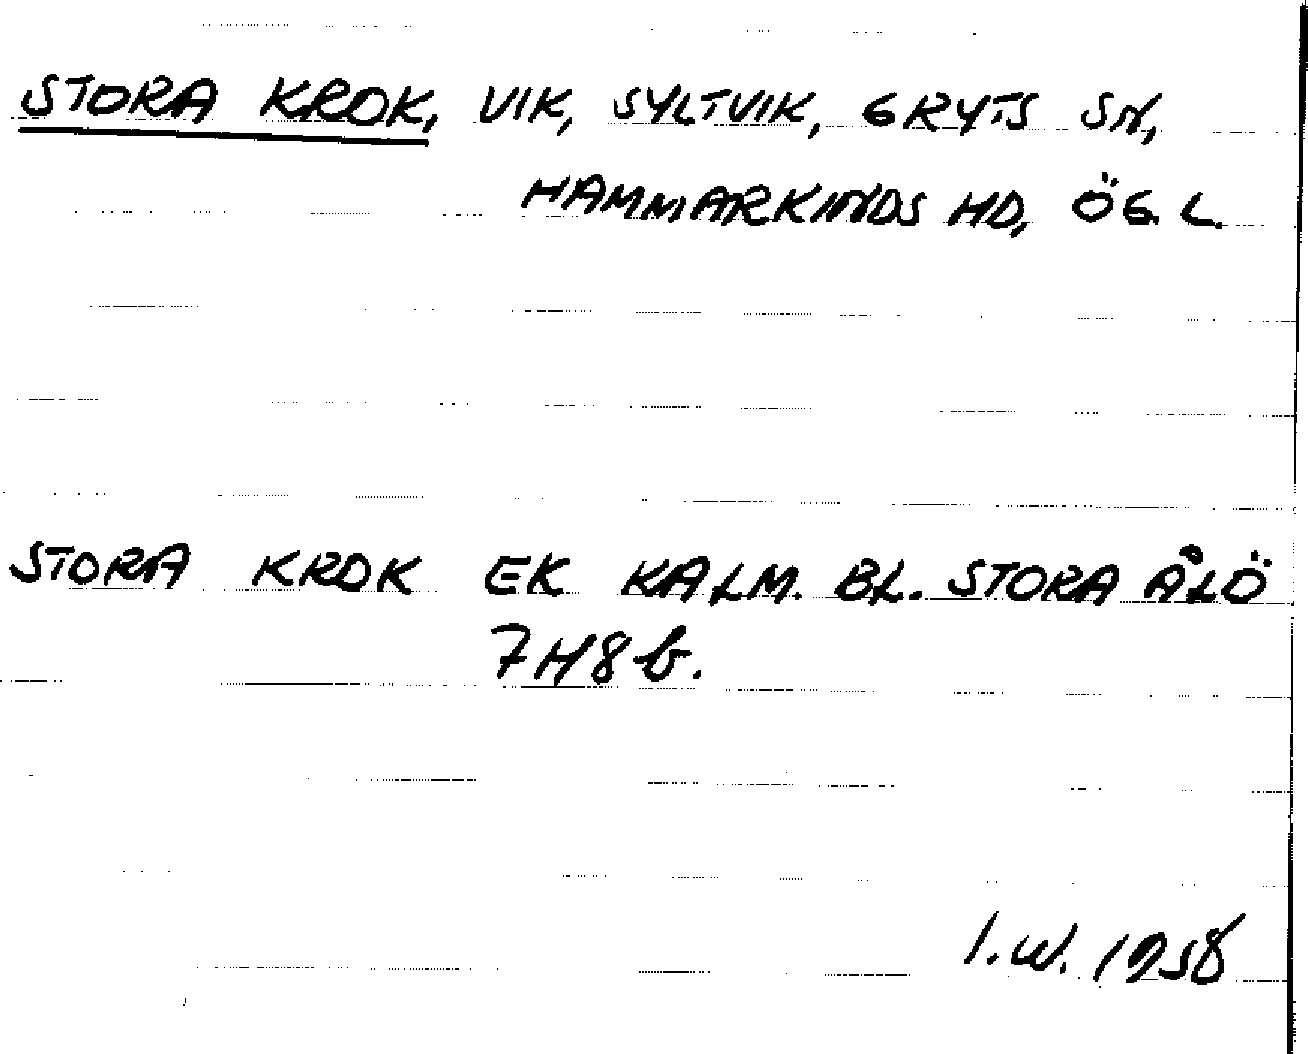 STORA KROK, VIK, SYLTVIK, GRYTS SN,
HAMMARKINDS HD, ÖG. L.
STORA KROK EK KALM. BL. STORA ÅLÖ
7H8b.
I.W. 1958